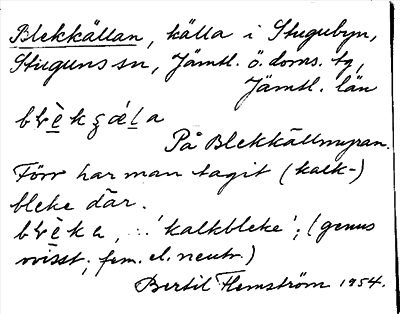 Blekkällan, källa i Stugubyn,
Stuguns sn, Jämtl. ö. doms. tg,
Jämtl. län
På Blekkällmyran.
Förr har man tagit (kalk-)
bleke där.
'kalkbleke'; (genus
ovisst; fem. el. neutr.)
Bertil Flemström 1954.